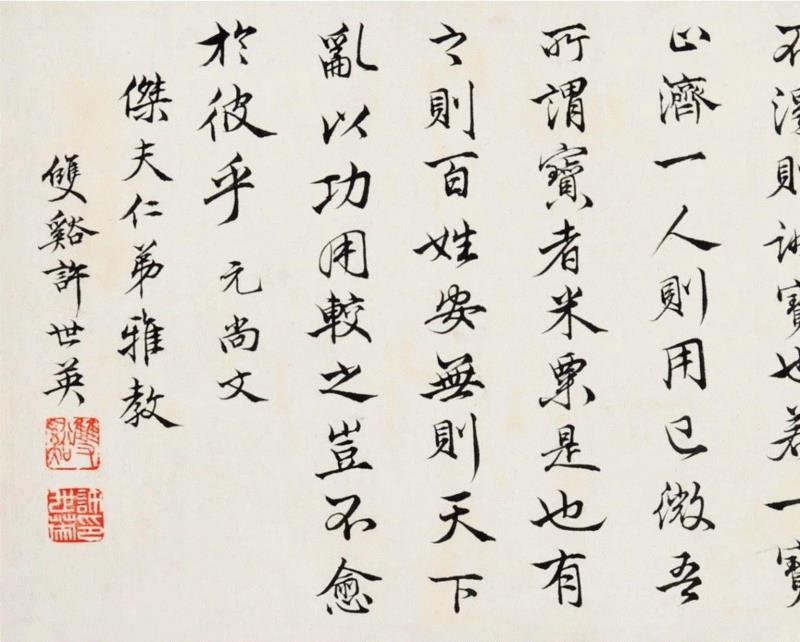 不渴則誠寶也若一寶
止濟一人則用已微吾
所謂寶者米粟是也有
之則百姓安無則天下
亂以功用較之豈不愈
於彼乎 元尚文
傑夫仁弟雅教
雙谿許世英
雙谿
許世英印